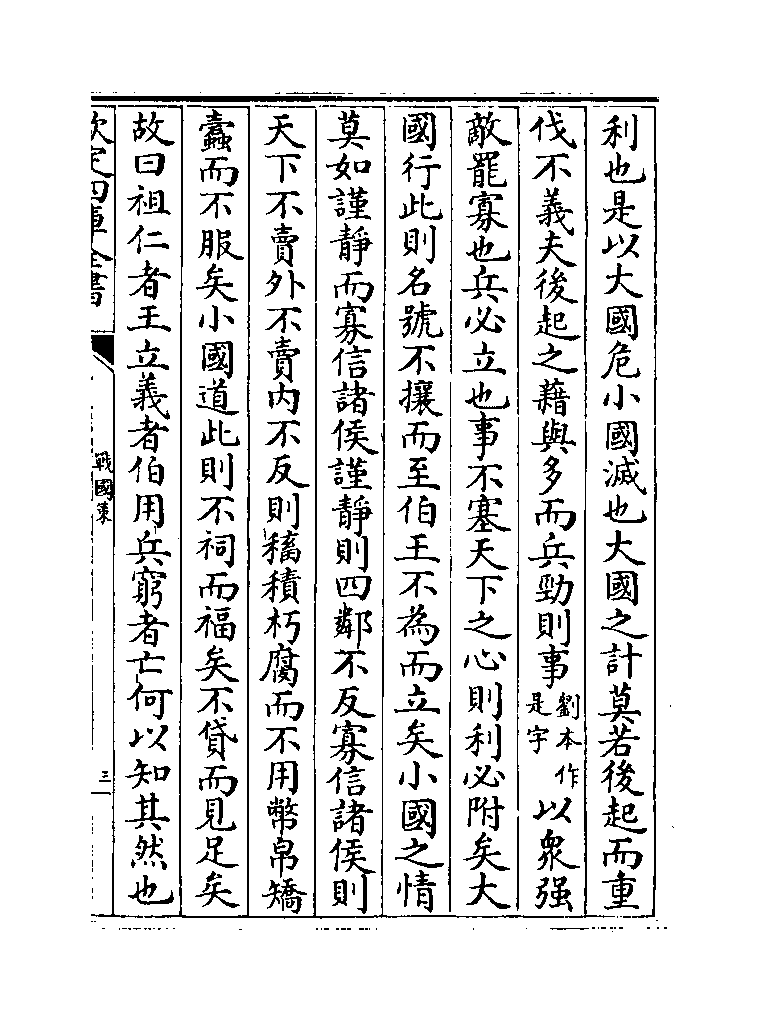 利也是以大國危小國滅也大國之計莫若後起而重
伐不義夫後起之藉與多而兵勁則事劉本作是字以衆强
敵罷寡也兵必立也事不塞天下之心則利必附矣大
國行此則名號不攘而至伯王不為而立矣小國之情
莫如謹靜而寡信諸侯謹靜則四鄰不反寡信諸侯則
天下不賣外不賣内不反則稿積朽腐而不用幣帛矯
蠹而不服矣小國道此則不祠而福矣不貸而見足矣
故曰祖仁者王立義者伯用兵窮者亡何以知其然也
欽定四庫全書
戰國策
三